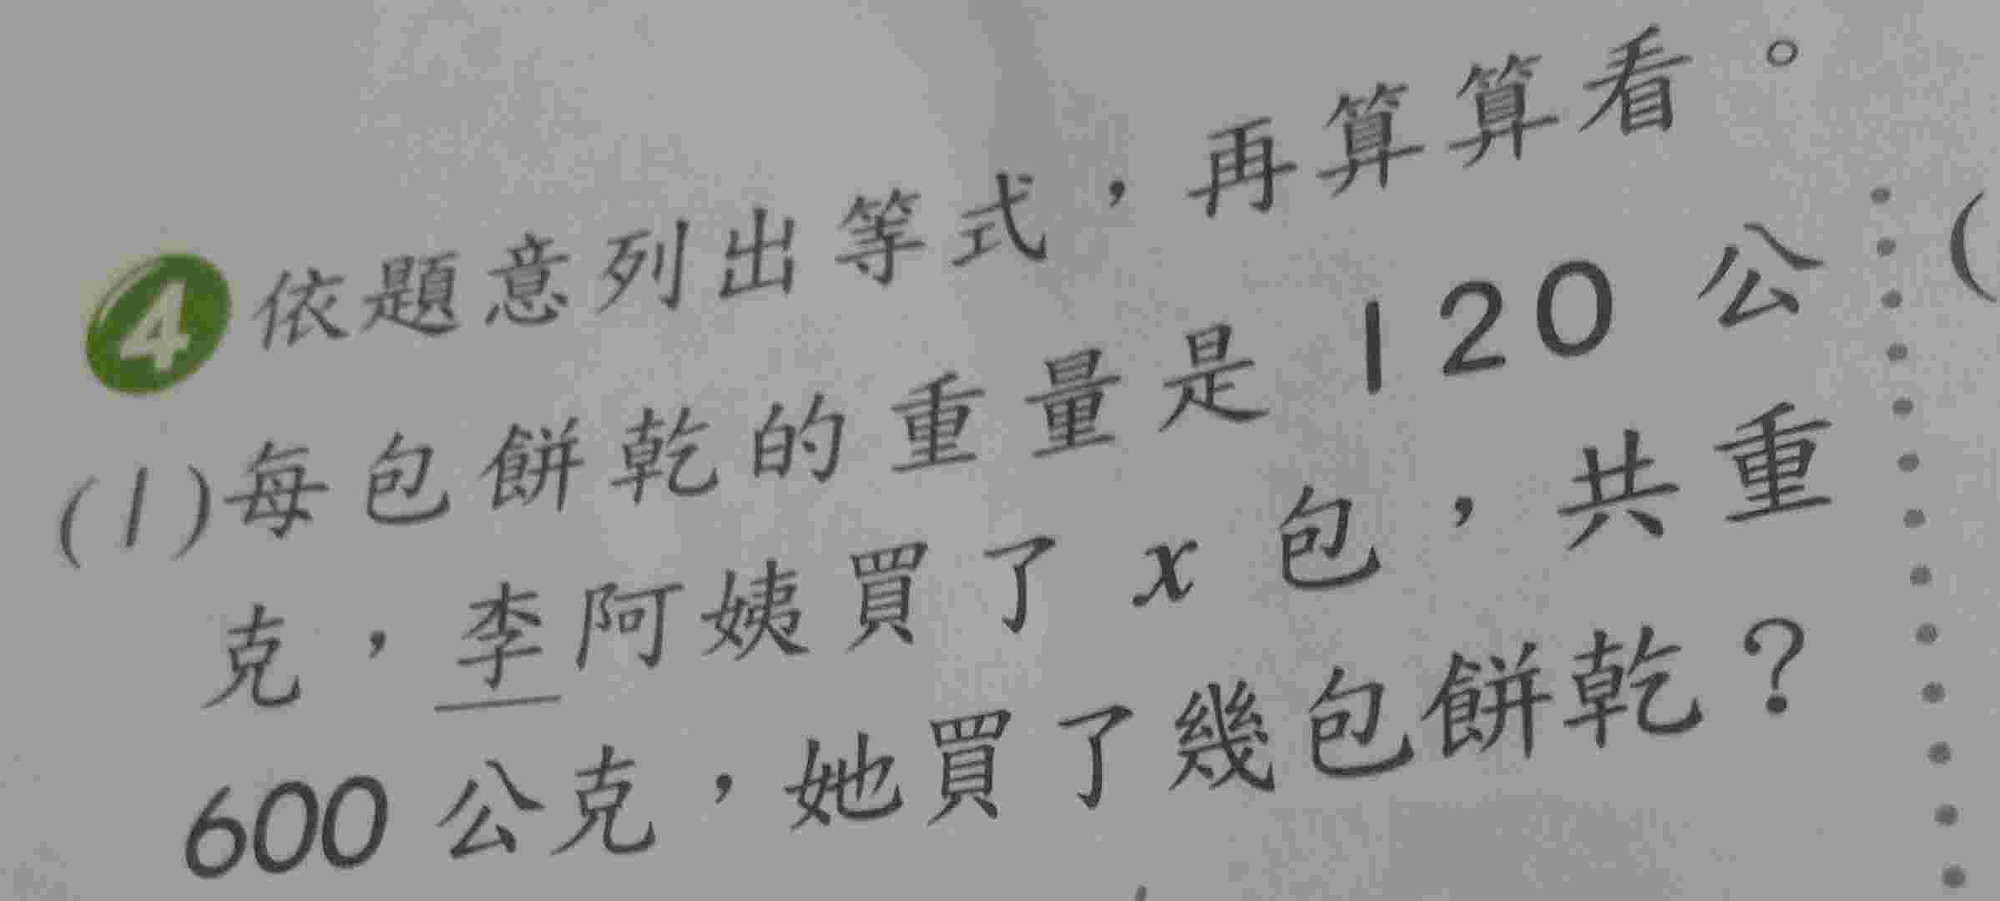 4 依題意列出等式，再算算看。
(1)每包餅乾的重量是 120 公
克，李阿姨買了 x 包，共重
600 公克，她買了幾包餅乾？
(